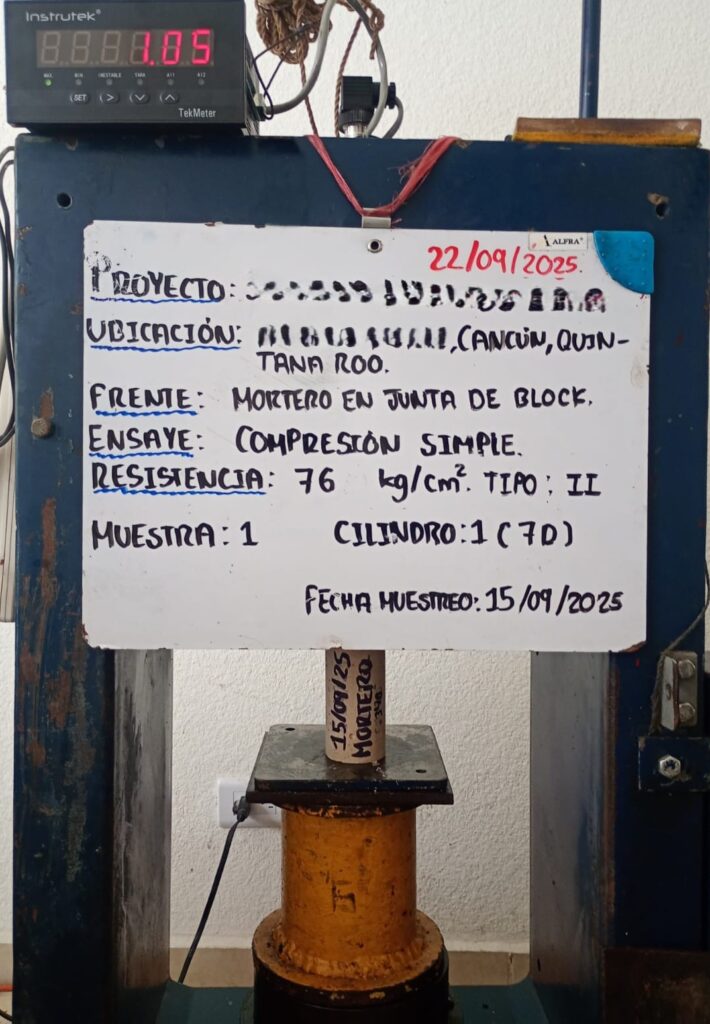 Instrutek®
1.05
MAX MIN INESTABLE TARA Al1 Al2
SET
TekMeter
ALFRA®
22/09/2025.
PROYECTO:
UBICACIÓN: , CANCÚN, QUIN-
TANA ROO.
FRENTE: MORTERO EN JUNTA DE BLOCK.
ENSAYE: COMPRESIÓN SIMPLE.
RESISTENCIA: 76 kg/cm². TIPO: II
MUESTRA: 1 CILINDRO: 1 (7D)
FECHA MUESTREO: 15/09/2025
15/09/25
MORTERO